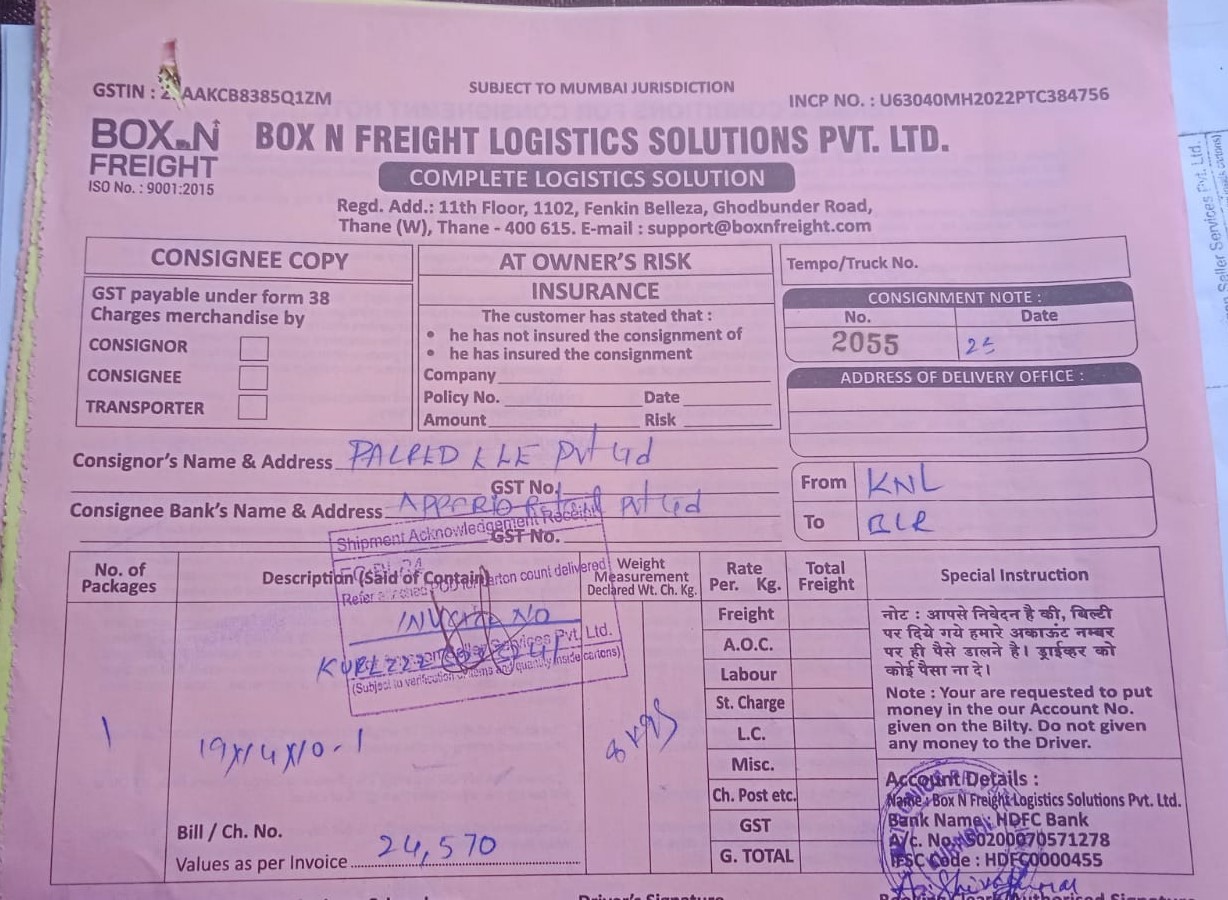 GSTIN : 2 AAKCB8385Q1ZM
SUBJECT TO MUMBAI JURISDICTION
INCP NO. : U63040MH2022PTC384756
BOX N FREIGHT
ISO No. : 9001:2015
BOX N FREIGHT LOGISTICS SOLUTIONS PVT. LTD.
COMPLETE LOGISTICS SOLUTION
Regd. Add.: 11th Floor, 1102, Fenkin Belleza, Ghodbunder Road,
Thane (W), Thane - 400 615. E-mail : support@boxnfreight.com
CONSIGNEE COPY
GST payable under form 38
Charges merchandise by
CONSIGNOR
CONSIGNEE
TRANSPORTER
AT OWNER'S RISK
INSURANCE
The customer has stated that :
• he has not insured the consignment of
• he has insured the consignment
Company
Policy No. Date
Amount Risk
Tempo/Truck No.
CONSIGNMENT NOTE :
No. Date
2055
ADDRESS OF DELIVERY OFFICE :
Consignor's Name & Address PALRED Pvt Ltd
GST No.
Consignee Bank's Name & Address Pvt Ltd
GST No.
From KNL
To BLR
Shipment Acknowledgement Receipt
Refer POD for carton count delivered
Seller Services Pvt. Ltd.
(Subject to verification of items and quantity inside cartons)
No. of Packages
Description (Said of Contain)
Weight
Measurement
Declared Wt. Ch. Kg.
Rate
Per. Kg.
Total
Freight
Special Instruction
INVOICE NO
1
19X14X10-1
8 kgs
Bill / Ch. No.
Values as per Invoice 24,570
Freight
A.O.C.
Labour
St. Charge
L.C.
Misc.
Ch. Post etc.
GST
G. TOTAL
नोट : आपसे निवेदन है की, बिल्टी
पर दिये गये हमारे अकाऊंट नम्बर
पर ही पैसे डालने है। ड्राईव्हर को
कोई पैसा ना दे।
Note : Your are requested to put
money in the our Account No.
given on the Bilty. Do not given
any money to the Driver.
Account Details :
Name : Box N Freight Logistics Solutions Pvt. Ltd.
Bank Name : HDFC Bank
A/c. No. 50200070571278
IFSC Code : HDFC0000455
Driver's Signature
Seller Services Pvt. Ltd.